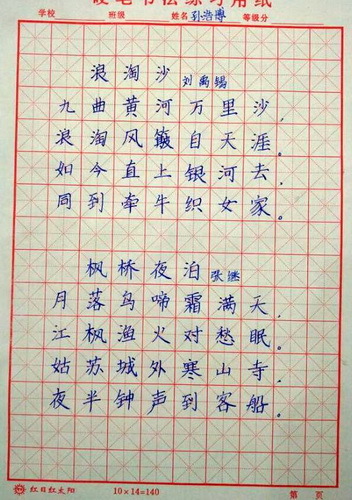 硬笔书法练习用纸
学校 班级 姓名 孙浩博 等级分
浪淘沙 刘禹锡
九曲黄河万里沙，
浪淘风簸自天涯。
如今直上银河去，
同到牵牛织女家。
枫桥夜泊 张继
月落乌啼霜满天，
江枫渔火对愁眠。
姑苏城外寒山寺，
夜半钟声到客船。
红日红太阳 10×14=140 第 页